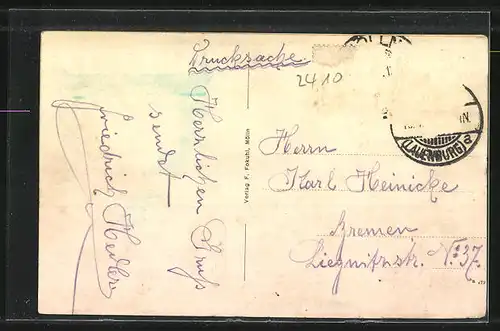 Drucksache
2410
Herzlichen Gruß
sendet
Friedrich Hedler
Verlag F. Fokuhl, Mölln
(LAUENBURG) a
Herrn
Karl Heinicke
Bremen
Liegnitzstr. No. 37.